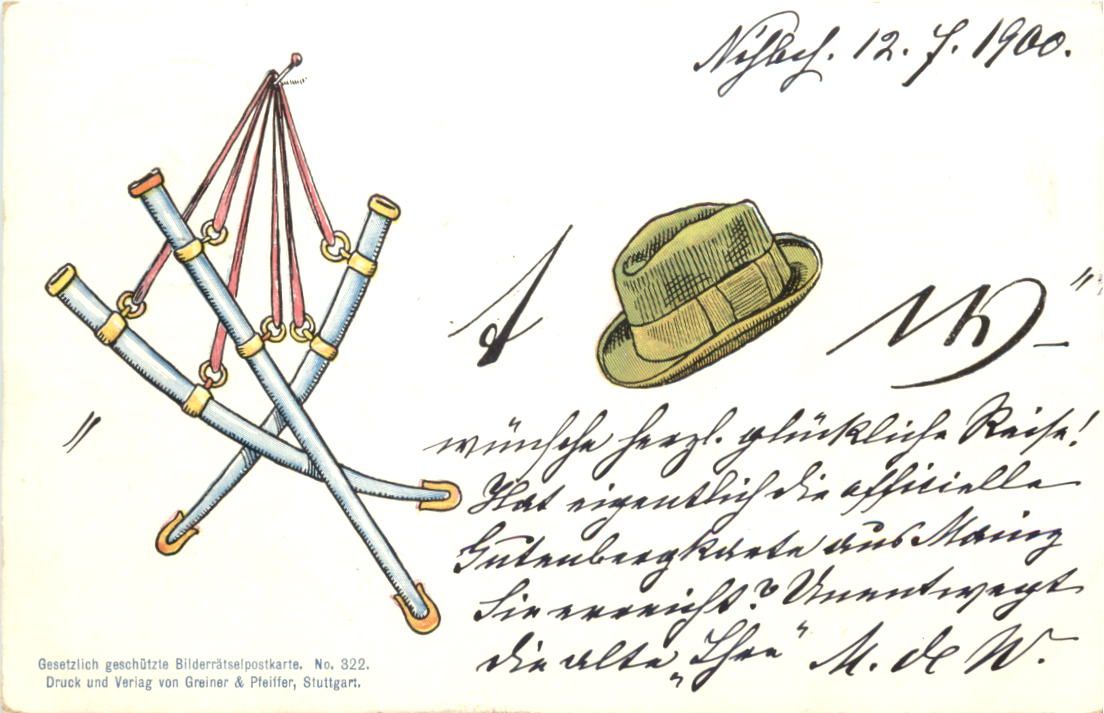 12. 7. 1900.
wünsche herzl. glückliche Reise!
Hat eigentlich die officielle
Gutenbergkarte aus Mainz
Sie erreicht? Unentwegt
die alte „Ihre“ M. de W.
Gesetzlich geschützte Bilderrätselpostkarte. No. 322.
Druck und Verlag von Greiner & Pfeiffer, Stuttgart.